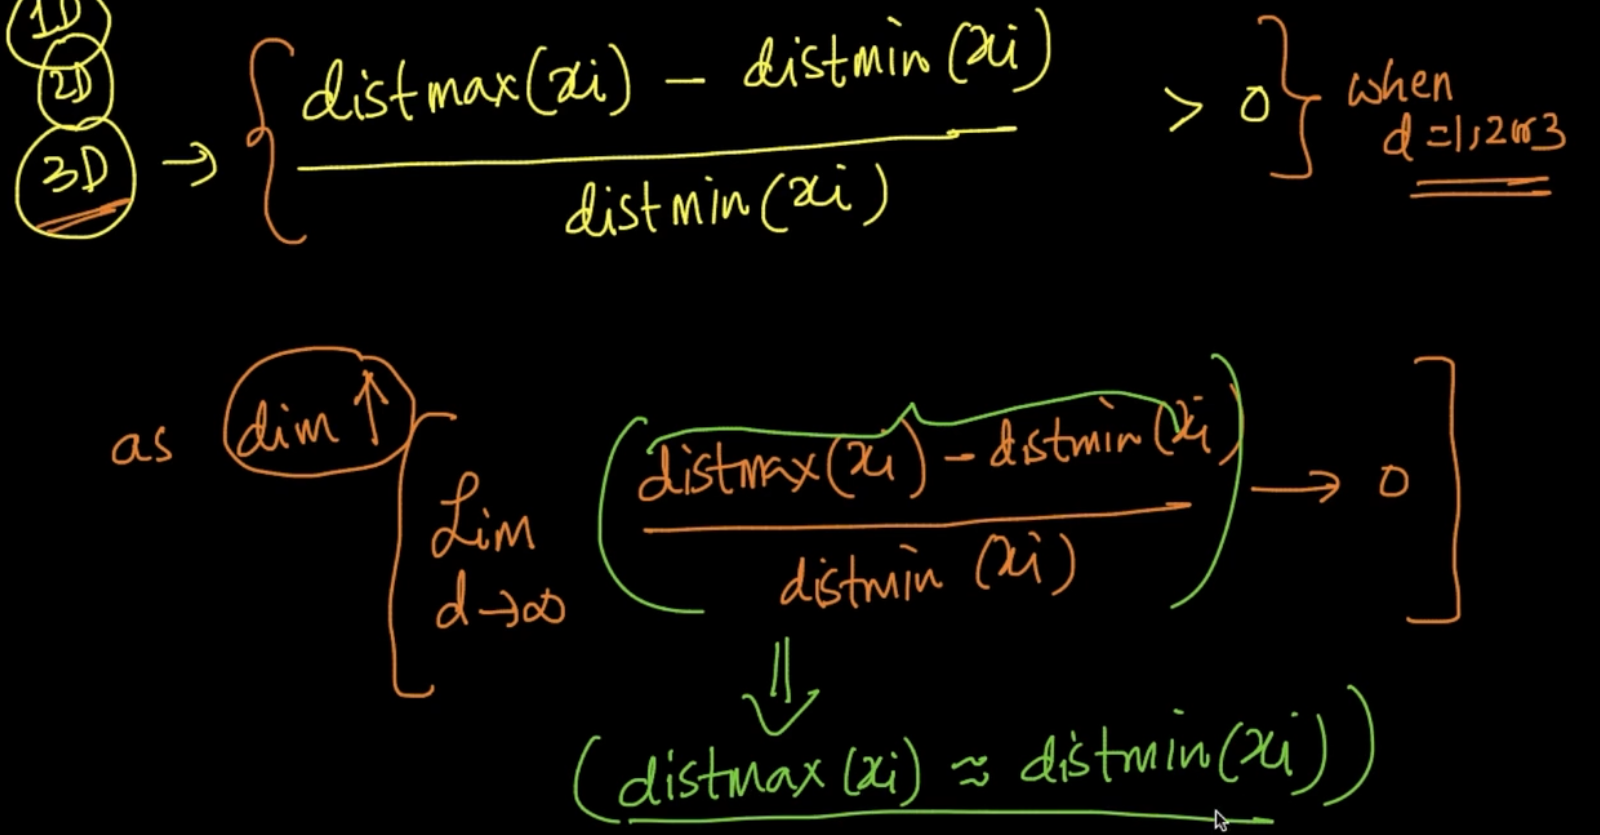 1D
2D
3D → { distmax(xi) - distmin(xi) / distmin(xi) > 0 } when d=1,2 or 3
as dim ↑ [ Lim d→∞ ( distmax(xi) - distmin(xi) / distmin(xi) ) → 0 ]
⇓
(distmax(xi) ≈ distmin(xi))